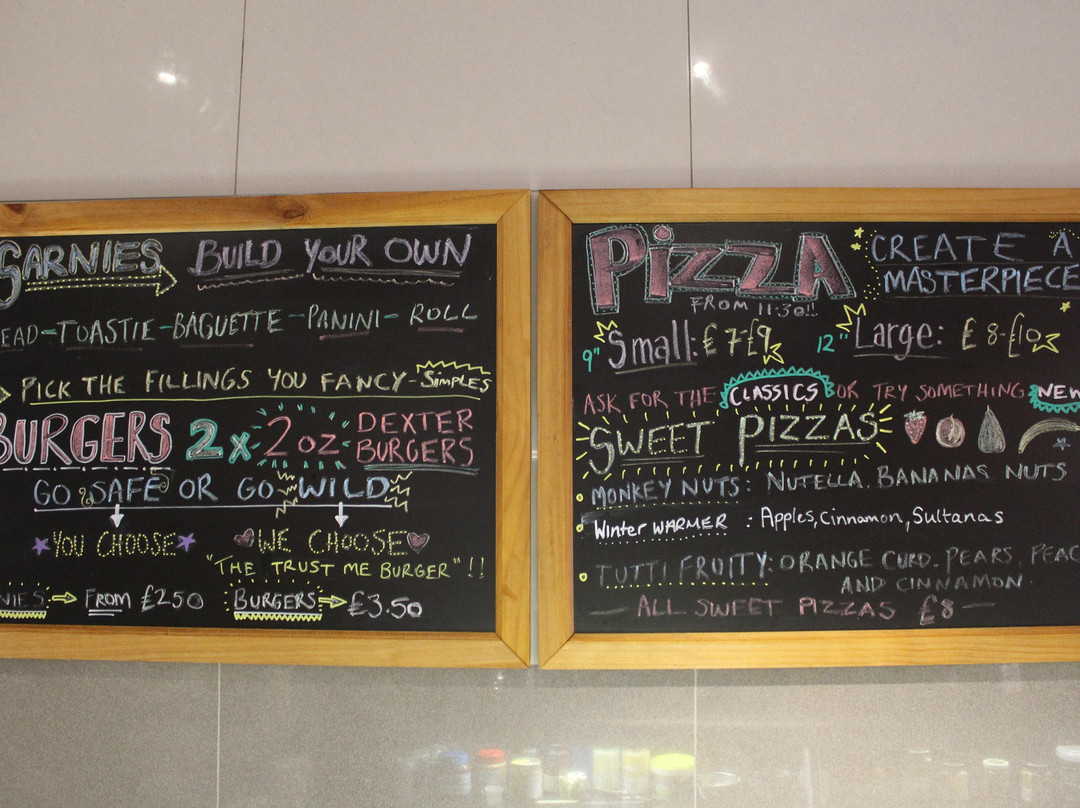 SARNIES BUILD YOUR OWN
EAD-TOASTIE-BAGUETTE-PANINI-ROLL
PICK THE FILLINGS YOU FANCY-SIMPLES
BURGERS 2x 2oz DEXTER BURGERS
GO SAFE OR GO WILD
YOU CHOOSE WE CHOOSE
"THE TRUST ME BURGER"!!
NIES FROM £250 BURGERS £3.50
PIZZA CREATE A MASTERPIECE
FROM 11:30!!
9" Small: £7-£9 12" Large: £8-£10
ASK FOR THE CLASSICS OR TRY SOMETHING NEW
SWEET PIZZAS
MONKEY NUTS: NUTELLA, BANANAS NUTS
Winter WARMER : Apples, Cinnamon, Sultanas
TUTTI FRUITY: ORANGE CURD, PEARS, PEAC
AND CINNAMON.
ALL SWEET PIZZAS £8